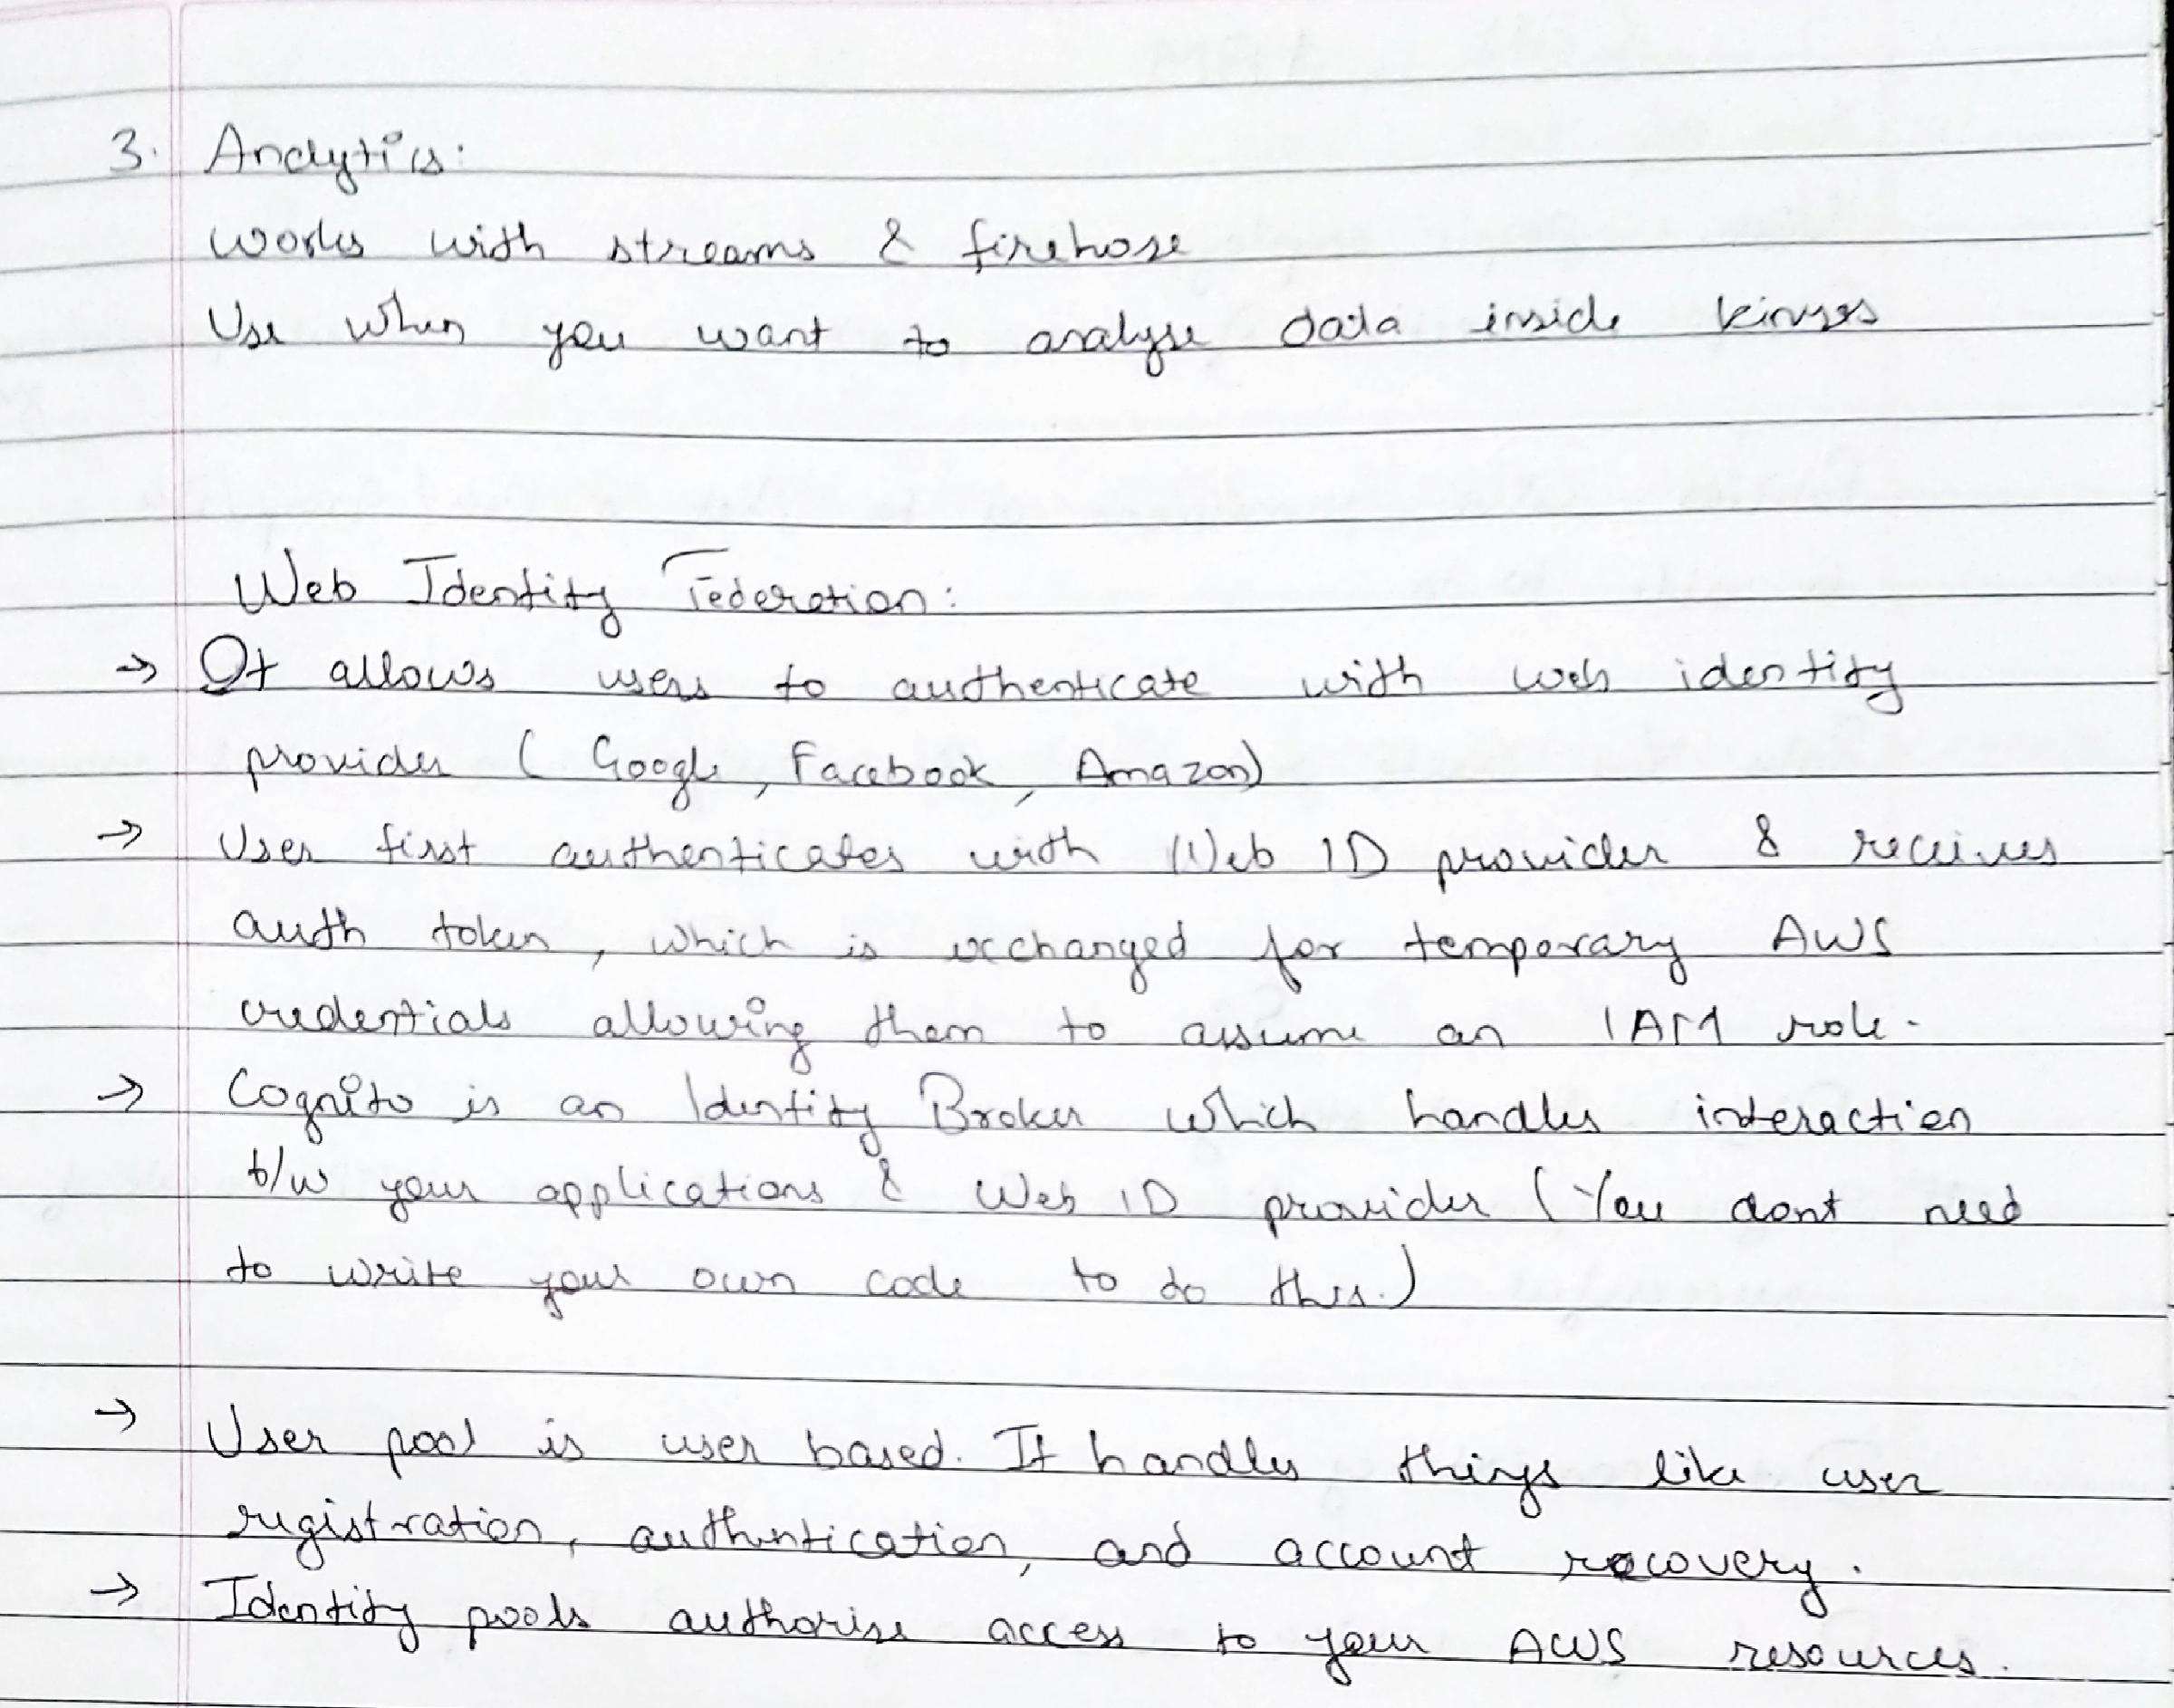 3. Analytics:
works with streams & firehose
Use when you want to analyse data inside kinses
Web Identity Federation:
→ It allows users to authenticate with web identity
provider ( Google, Facebook, Amazon)
→ User first authenticates with Web ID provider & receives
auth token, which is exchanged for temporary AWS
credentials allowing them to assume an IAM role.
→ Cognito is an Identity Broker which handles interaction
b/w your applications & Web ID provider ( You dont need
to write your own code to do this.)
→ User pool is user based. It handles things like user
registration, authentication, and account recovery.
→ Identity pools authorise access to your AWS resources.